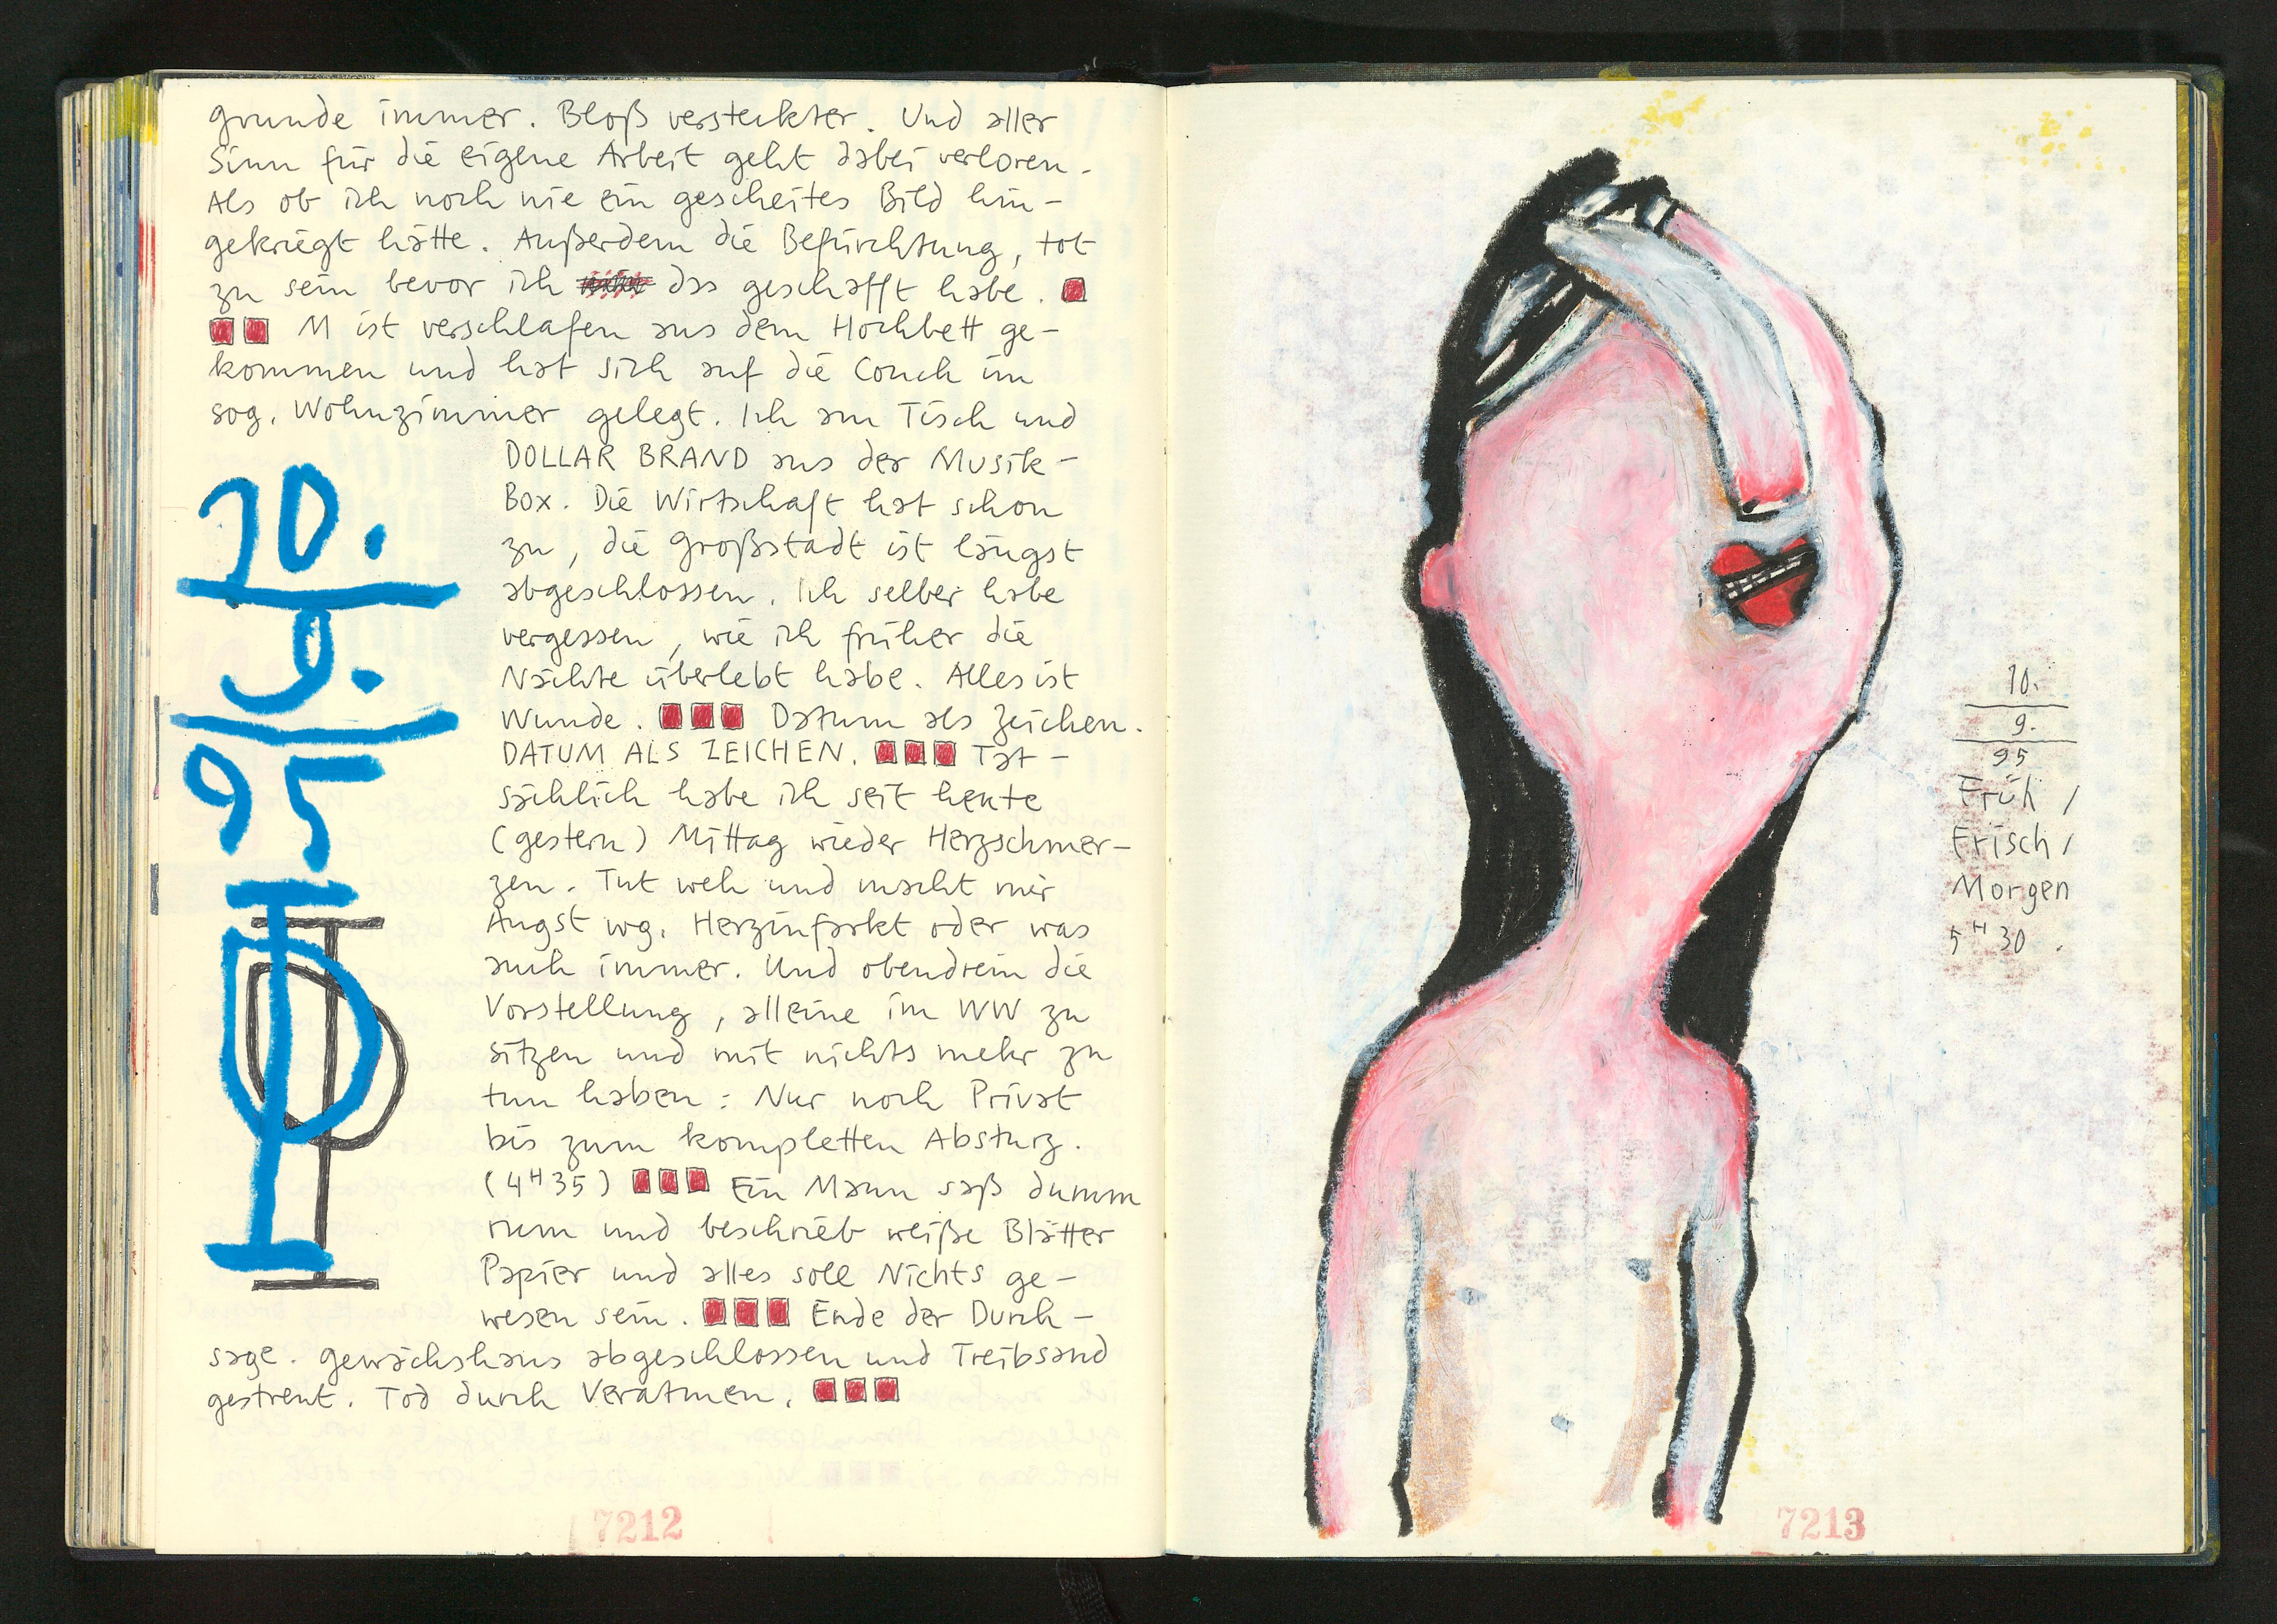 grunde immer. Bloß versteckter. Und aller
Sinn für die eigene Arbeit geht dabei verloren.
Als ob ich noch nie ein gescheites Bild hin-
gekriegt hätte. Außerdem die Befürchtung, tot
zu sein bevor ich das geschafft habe.
M ist verschlafen aus dem Hochbett ge-
kommen und hat sich auf die Couch im
sog. Wohnzimmer gelegt. Ich am Tisch und
DOLLAR BRAND aus der Musik-
Box. Die Wirtschaft hat schon
zu, die Großstadt ist längst
abgeschlossen. Ich selber habe
vergessen, wie ich früher die
Nächte überlebt habe. Alles ist
Wunde. Datum als Zeichen.
DATUM ALS ZEICHEN. Tat-
sächlich habe ich seit heute
(gestern) Mittag wieder Herzschmer-
zen. Tut weh und macht mir
Angst wg. Herzinfarkt oder was
auch immer. Und obendrein die
Vorstellung, alleine im WW zu
sitzen und mit nichts mehr zu
tun haben: Nur noch Privat
bis zum kompletten Absturz.
(4H35) Ein Mann saß dumm
rum und beschrieb weiße Blätter
Papier und alles soll Nichts ge-
wesen sein. Ende der Durch-
sage. Gewächshaus abgeschlossen und Treibsand
gestreut. Tod durch Veratmen.
10.
9.
95
7212
10.
9.
95
Früh /
Frisch /
Morgen
5H30.
7213